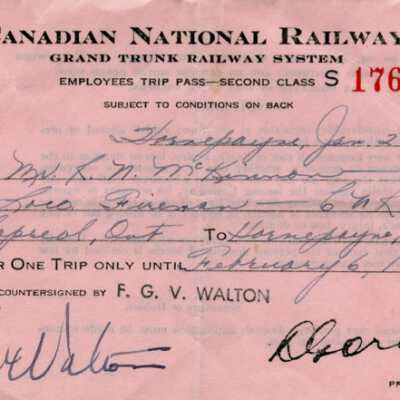 CANADIAN NATIONAL RAILWAY
GRAND TRUNK RAILWAY SYSTEM
EMPLOYEES TRIP PASS—SECOND CLASS S 176
SUBJECT TO CONDITIONS ON BACK
Hornepayne, Jan. 2
Mr. K. N. McKinnon
Loco Fireman — CNR
Capreol, Ont To Hornepayne,
R ONE TRIP ONLY UNTIL February 6, 1
COUNTERSIGNED BY F. G. V. WALTON
Walton
PR